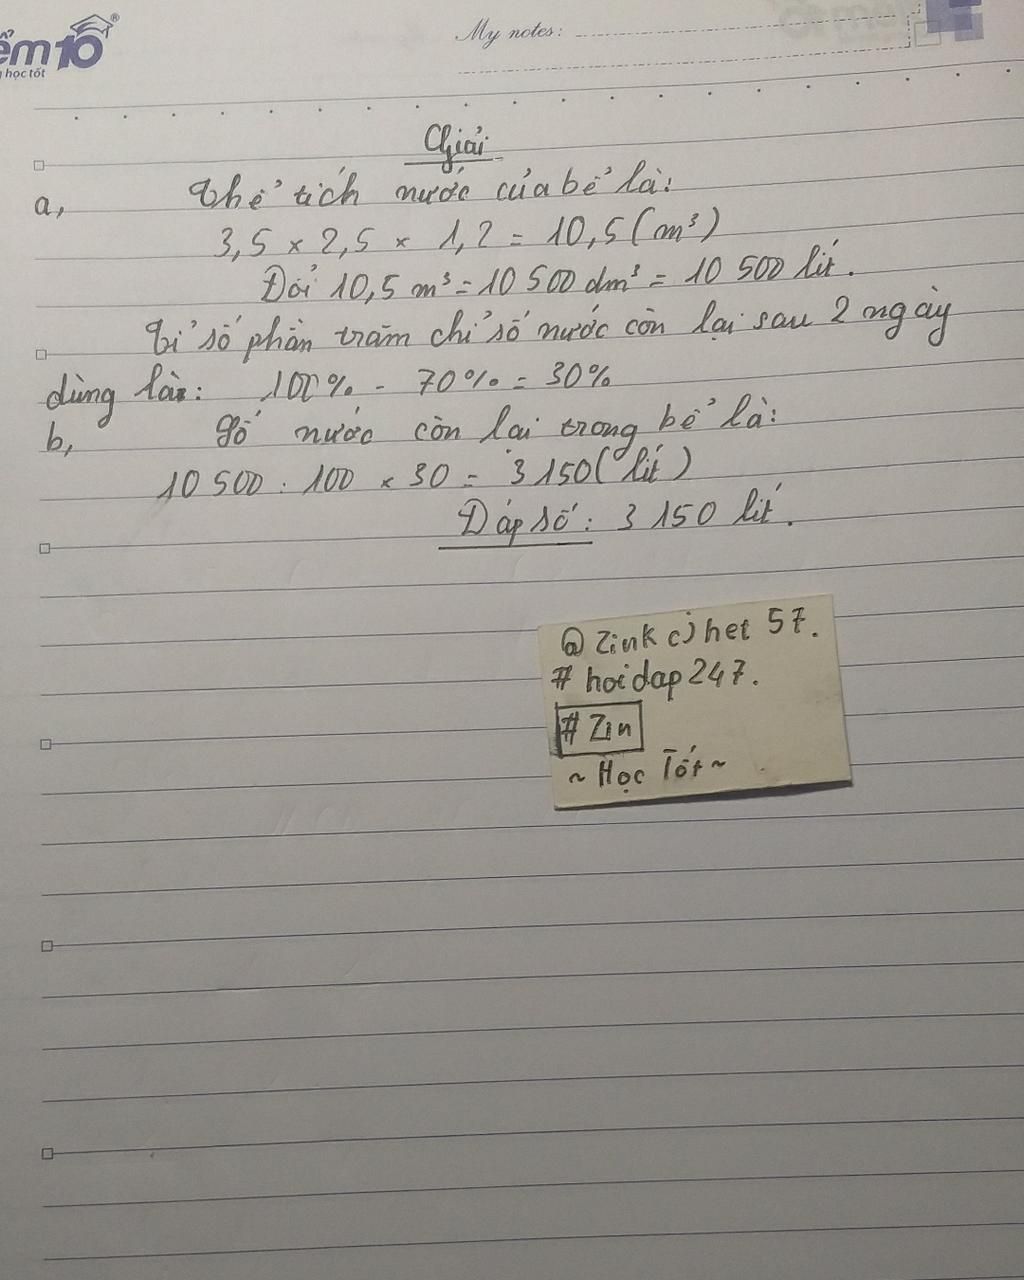 ểm10®
học tốt
My notes:
Giải
a, Thể tích nước của bể là:
3,5 × 2,5 × 1,2 = 10,5 (m³)
Đổi 10,5 m³ = 10 500 dm³ = 10 500 lít.
Tỉ số phần trăm chỉ số nước còn lại sau 2 ngày
dùng là: 100% - 70% = 30%
b, Số nước còn lại trong bể là:
10 500 : 100 × 30 = 3 150 (lít)
Đáp số: 3 150 lít.
@ Zink cj het 57.
# hoidap 247.
# Zin
~ Học Tốt ~